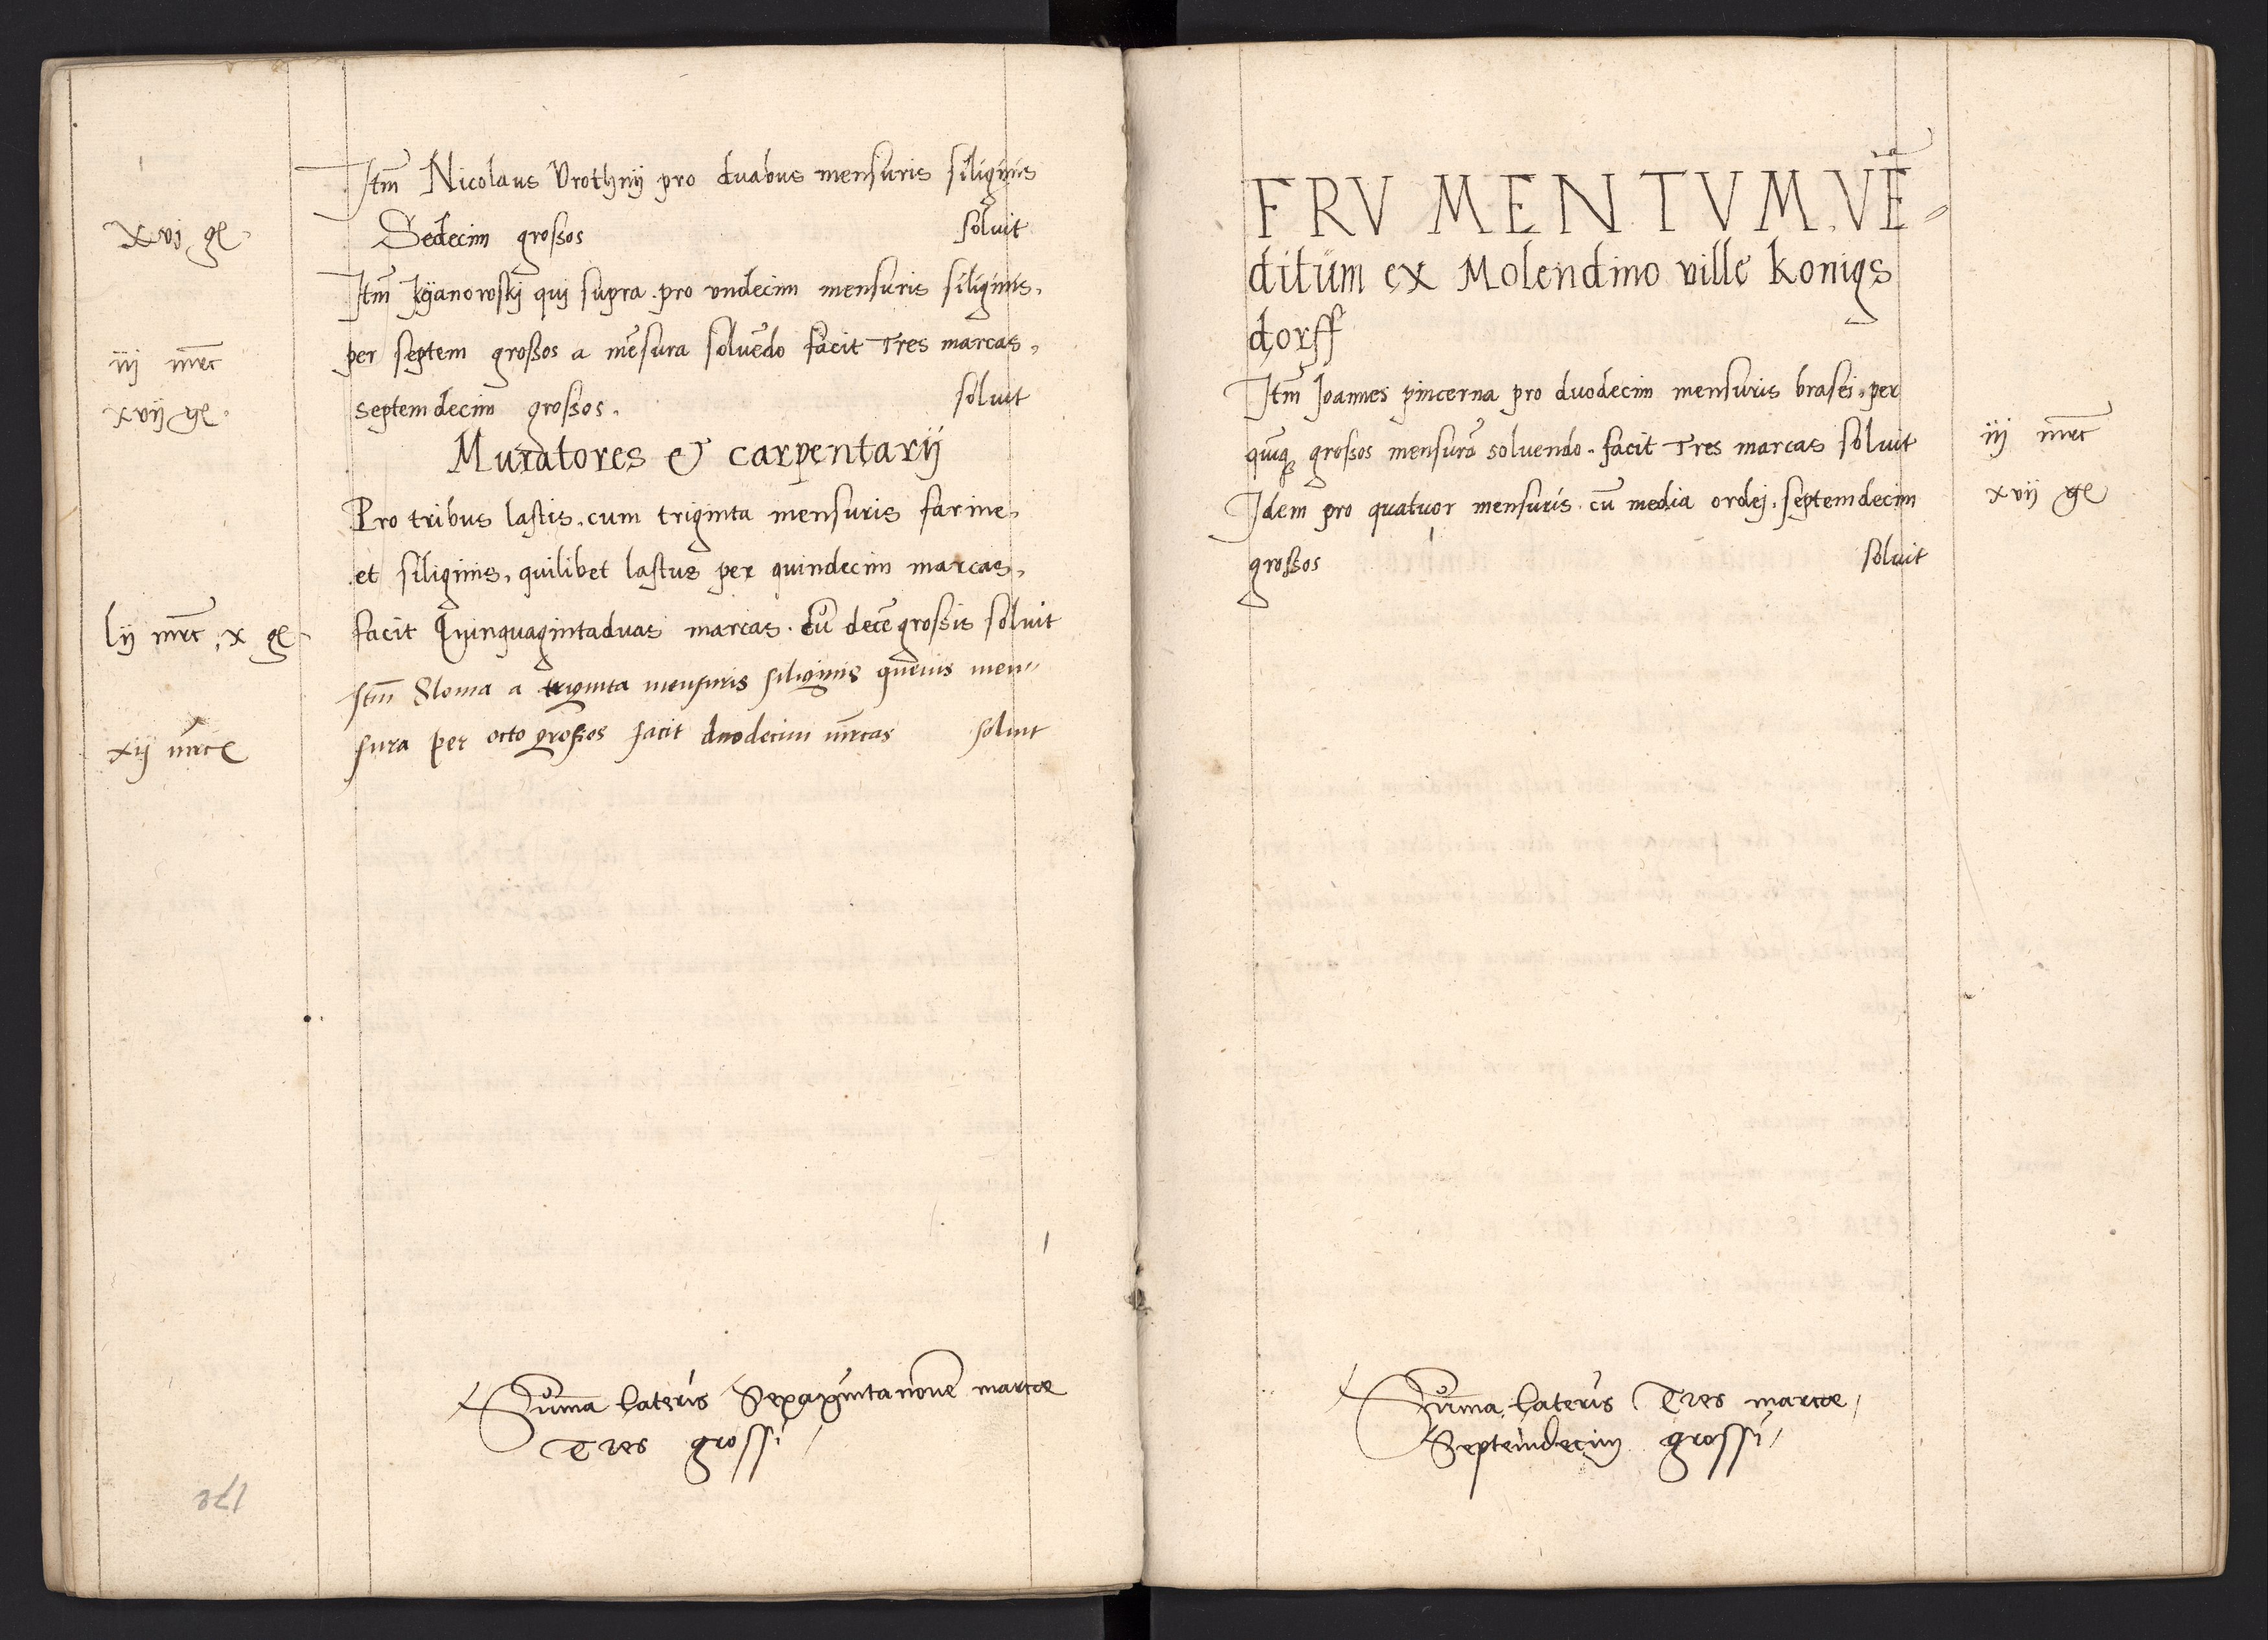 Itm̄ Nicolaus Vrothnÿ pro duabus mensuris siliginis
xvj gͤ
Sedecim grossos soluit
Itm̄ Kÿanowskj quj supra. pro vndecim mensuris siliginis.
iij mrc̄
per septem grossos a mēsura soluēdo facit Tres marcas.
xvij gͤ.
septemdecim grossos. soluit
Muratores & carpentarij
Pro tribus lastis. cum triginta mensuris farine.
et siliginis. quilibet lastus per quindecim marcas.
lij mrc̄. x gͤ
facit Quinquagintaduas marcas. cū decē grossis soluit
Itm̄ Sloma a triginta mensuris siliginis queuis men„
xij mrcͤ
sura per octo grossos facit duodecim mrcas soluit
Suma Lateris Sexagintanoue marce
Tres grossi
172
FRVMENTVM. VĒ=
ditum ex Molendino ville konigs
dorff
Itm̄ Joannes pincerna pro duodecim mensuris brasei. per
quiq; grossos mensurā soluendo. facit Tres marcas soluit
iij mrc̄
Idem pro quatuor mensuris. cū media ordej. septemdecim
xvij gͤ
grossos soluit
Suma Lateris Tres marce,
Septemdecim grossi,